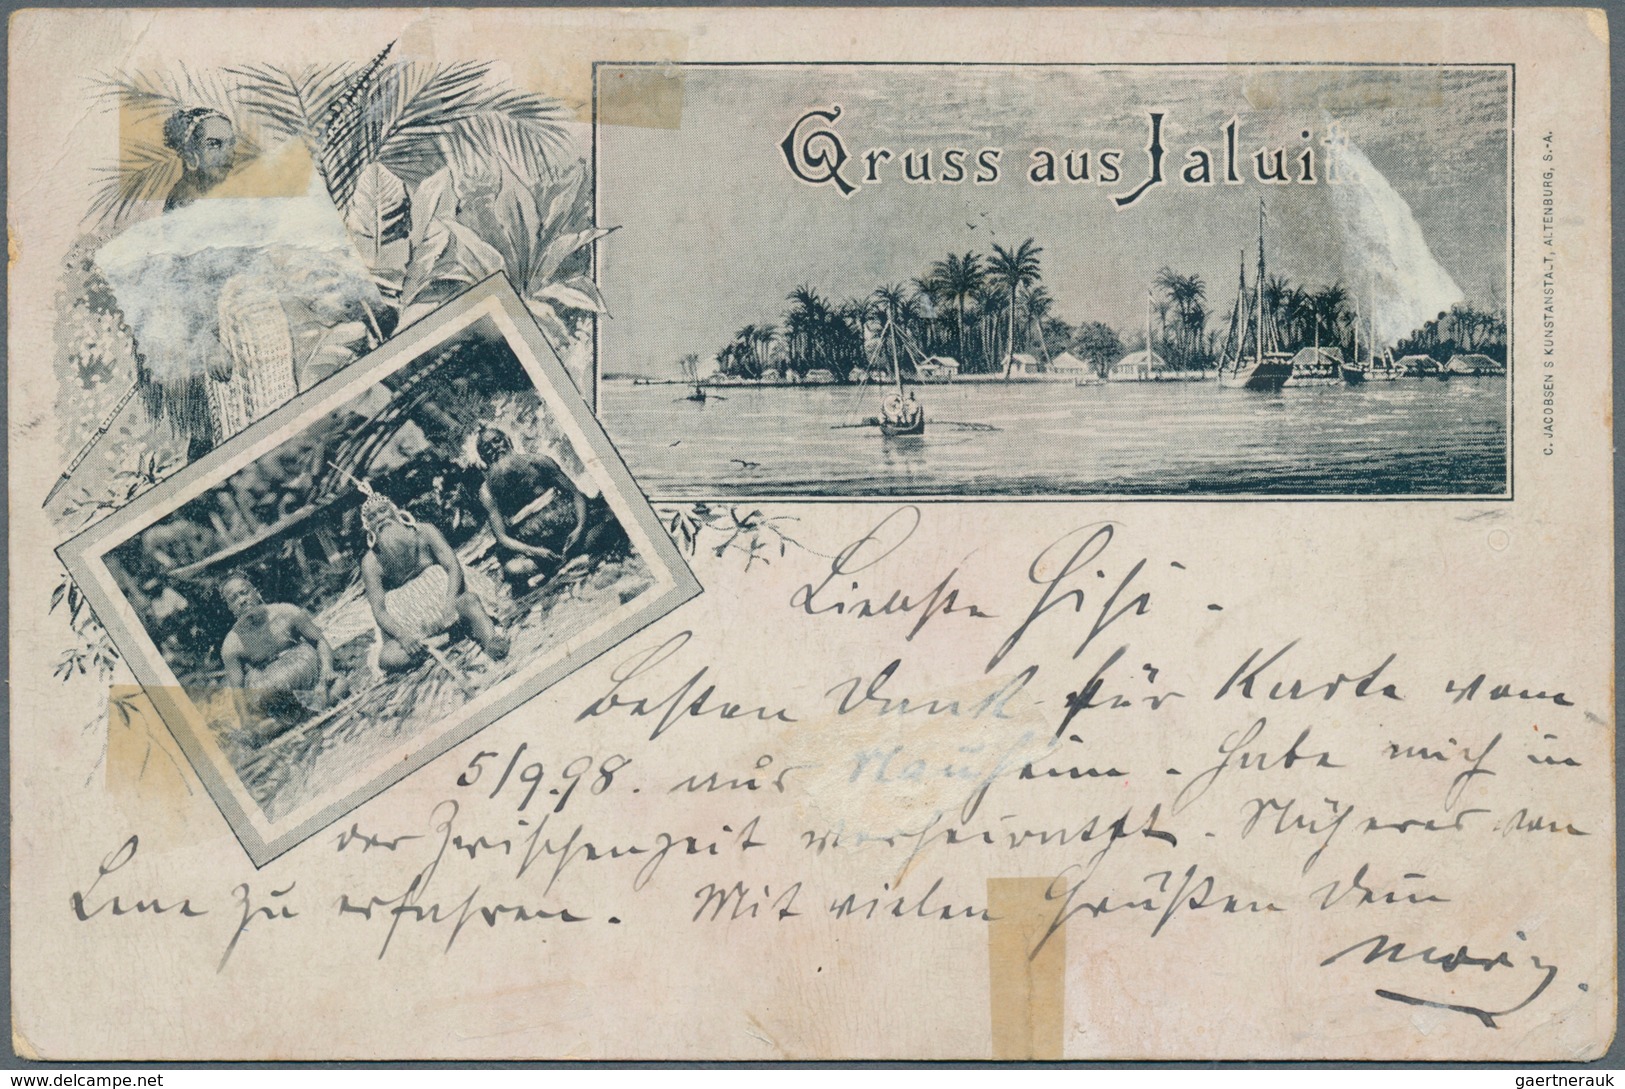 Gruss aus Jaluit
C. JACOBSEN S KUNSTANSTALT, ALTENBURG, S.-A.
Liebste Hisi -
Besten Dank für Karte vom
5/9.98. aus Nauheim - Habe mich in
der Zwischenzeit verheiratet. Näheres von
Lene zu erfahren. Mit vielen Grüßen Dein
delcampe.net
gaertnerauk